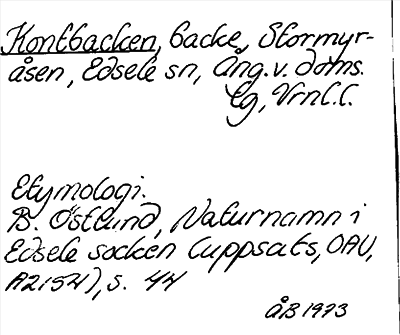 Kontbacken, backe, Stormyr-
åsen, Edsele sn, Ång. v. doms.
lg, Vrnl.l.
Etymologi.
B. Östlund, Naturnamn i
Edsele socken (uppsats, OAU,
A2154), s. 44
ÅB 1973